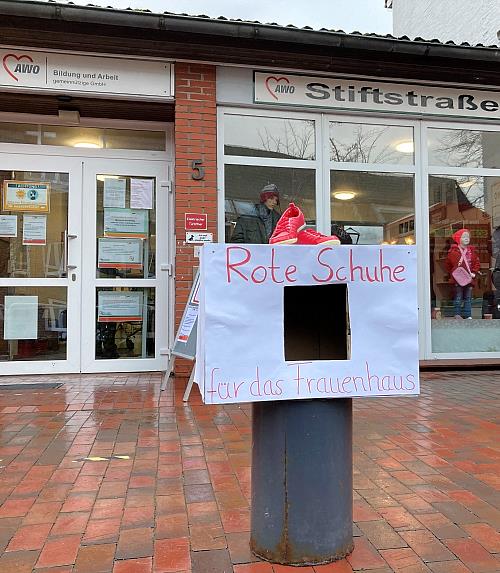 AWO
Bildung und Arbeit
gemeinnützige GmbH
AWO Stiftstraße
5
Rote Schuhe
für das Frauenhaus